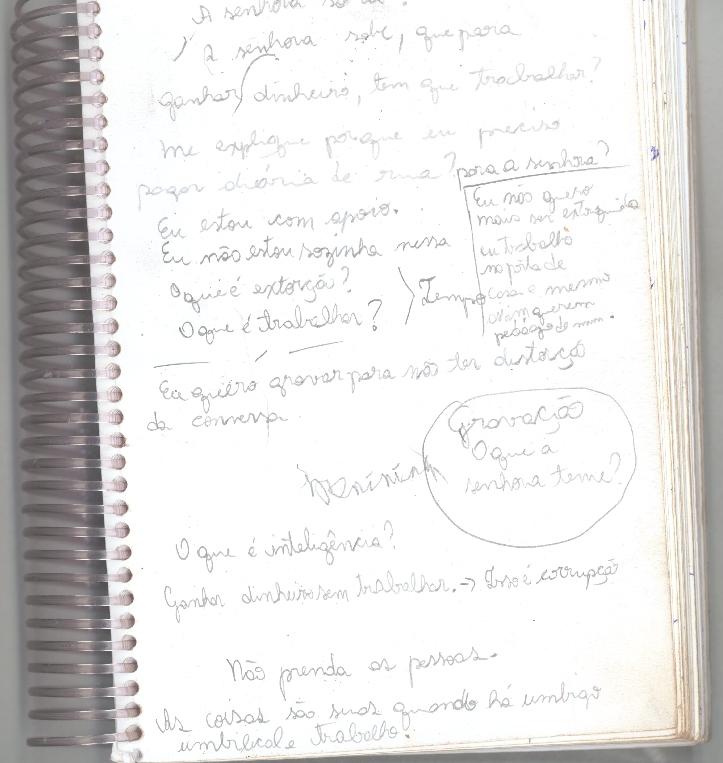 A senhora
A senhora sabe, que para
ganhar dinheiro, tem que trabalhar?
Me explique porque eu preciso
pagar diária de rua? para a senhora?
Eu estou com apoio.
Eu não estou sozinha nessa
O que é extorção?
O que é trabalhar?
Tempo
Eu não quero
mais ser extorquida
eu trabalho
na porta de
casa e mesmo
assim querem
pedágio de mim.
Eu quero gravar para não ter distorçã
da conversa
Gravação
O que a
senhora teme?
O que é inteligência?
Ganhar dinheiro sem trabalhar. -> Isso é corrupção
Não prenda as pessoas.
As coisas são suas quando há umbigo
umbilical e trabalho.